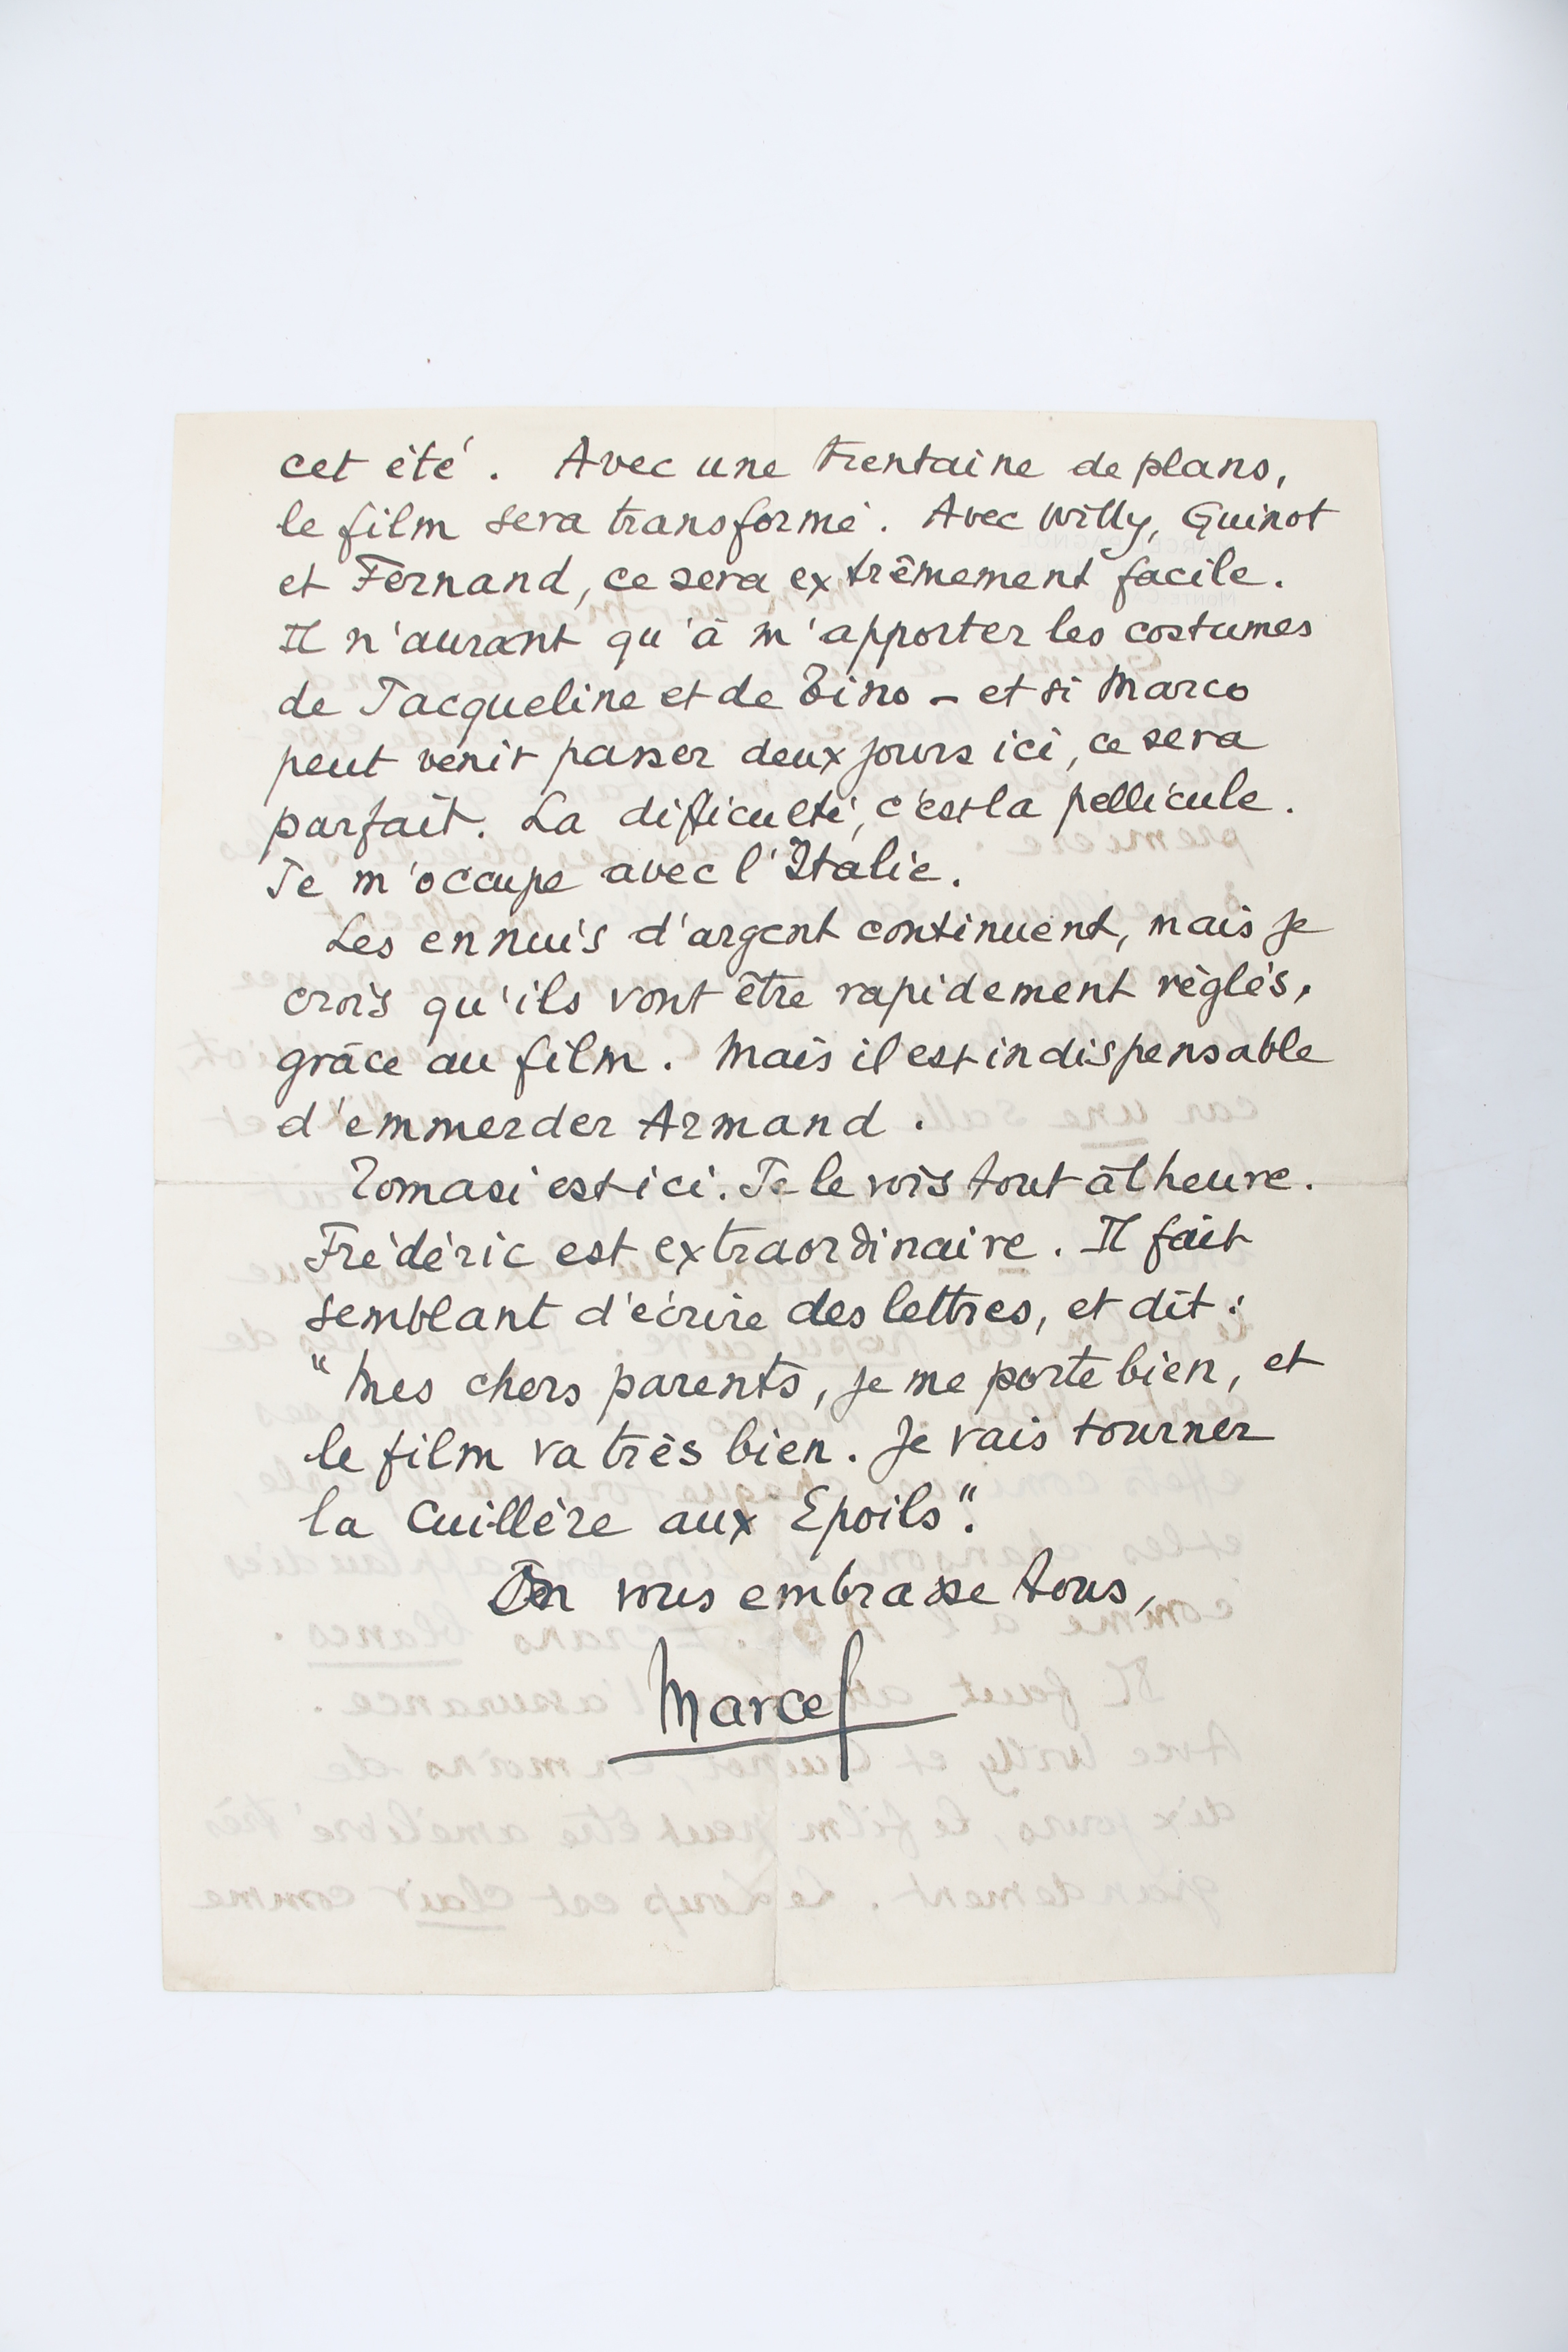 cet été. Avec une trentaine de plans,
le film sera transformé. Avec Willy, Guinot
et Fernand, ce sera extrêmement facile.
Il n'aurant qu'à m'apporter les costumes
de Jacqueline et de Tino - et si Marco
peut venir passer deux jours ici, ce sera
parfait. La difficulté, c'est la pellicule.
Je m'occupe avec l'Italie.
Les ennuis d'argent continuent, mais je
crois qu'ils vont être rapidement réglés,
grâce au film. Mais il est indispensable
d'emmerder Armand.
Tomasi est ici. Je le vois tout à l heure.
Frédéric est extraordinaire. Il fait
semblant d'écrire des lettres, et dit :
"Mes chers parents, je me porte bien, et
le film va très bien. Je vais tourner
la Cuillère aux Epoils".
On vous embrasse tous,
Marcel